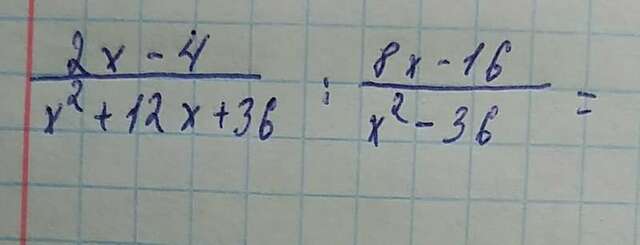 (2x - 4)/(x² + 12x + 36) : (8x - 16)/(x² - 36) =